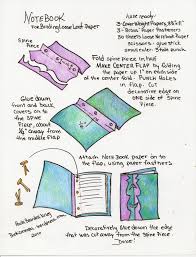 NOTEBOOK
For Binding Loose Leaf Paper
Use one of:
3 - Cover Weight Papers, 8.5"x11"
3 - Brass "Paper" Fasteners
30 sheets Loose Notebook Paper
scissors - glue stick
ornamental - 3 hole punch
Spine
Piece
Fold spine piece in half
Make CENTER FLAP by folding
the paper up 1" on each side
of the center fold. Punch Holes
in Flap. Cut
decorative edge on
one side of Spine
Piece.
Glue down
front and back
covers, on to
the Spine
Flap, about
1/2" away from
the middle Flap
Attach Notebook paper on to
the flap, using brads.
Decoratively Glue down the edge
that was cut away from the Spine Piece
Done!
2010